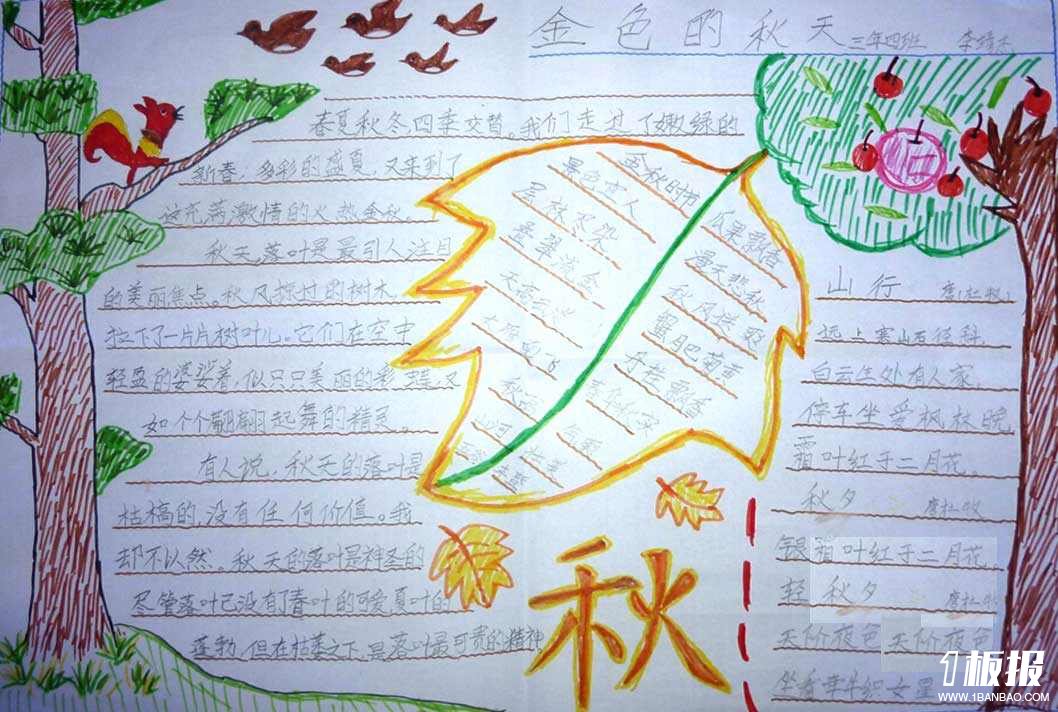 金色的秋天 三年四班
春夏秋冬四季交替。我们走过了嫩绿的
新春,多彩的盛夏,又来到了
这充满激情的火热金秋。
秋天,落叶是最引人注目
的美丽焦点。秋风掠过的树木,
拉下了一片片树叶儿。它们在空中
轻盈的婆娑着,似只只美丽的彩蝶,又
如个个翩翩起舞的精灵。
有人说,秋天的落叶是
枯槁的,没有任何价值。我
却不以然。秋天的落叶是神圣的
尽管落叶已没有了春叶的可爱夏叶的
蓬勃,但在枯萎之下,是落叶最可贵的精神
金秋时节
景色宜人
层林尽染
叠翠流金
天高云淡
瓜果飘香
秋风送爽
蟹肥菊黄
丹桂飘香
秋
山行 唐:杜牧
远上寒山石径斜,
白云生处有人家,
停车坐爱枫林晚,
霜叶红于二月花。
秋夕 唐杜牧
银霜叶红于二月花,
轻 秋夕 唐杜牧
天阶夜色 天阶夜色
坐看牵牛织女星
板报
WWW.1BANBAO.COM